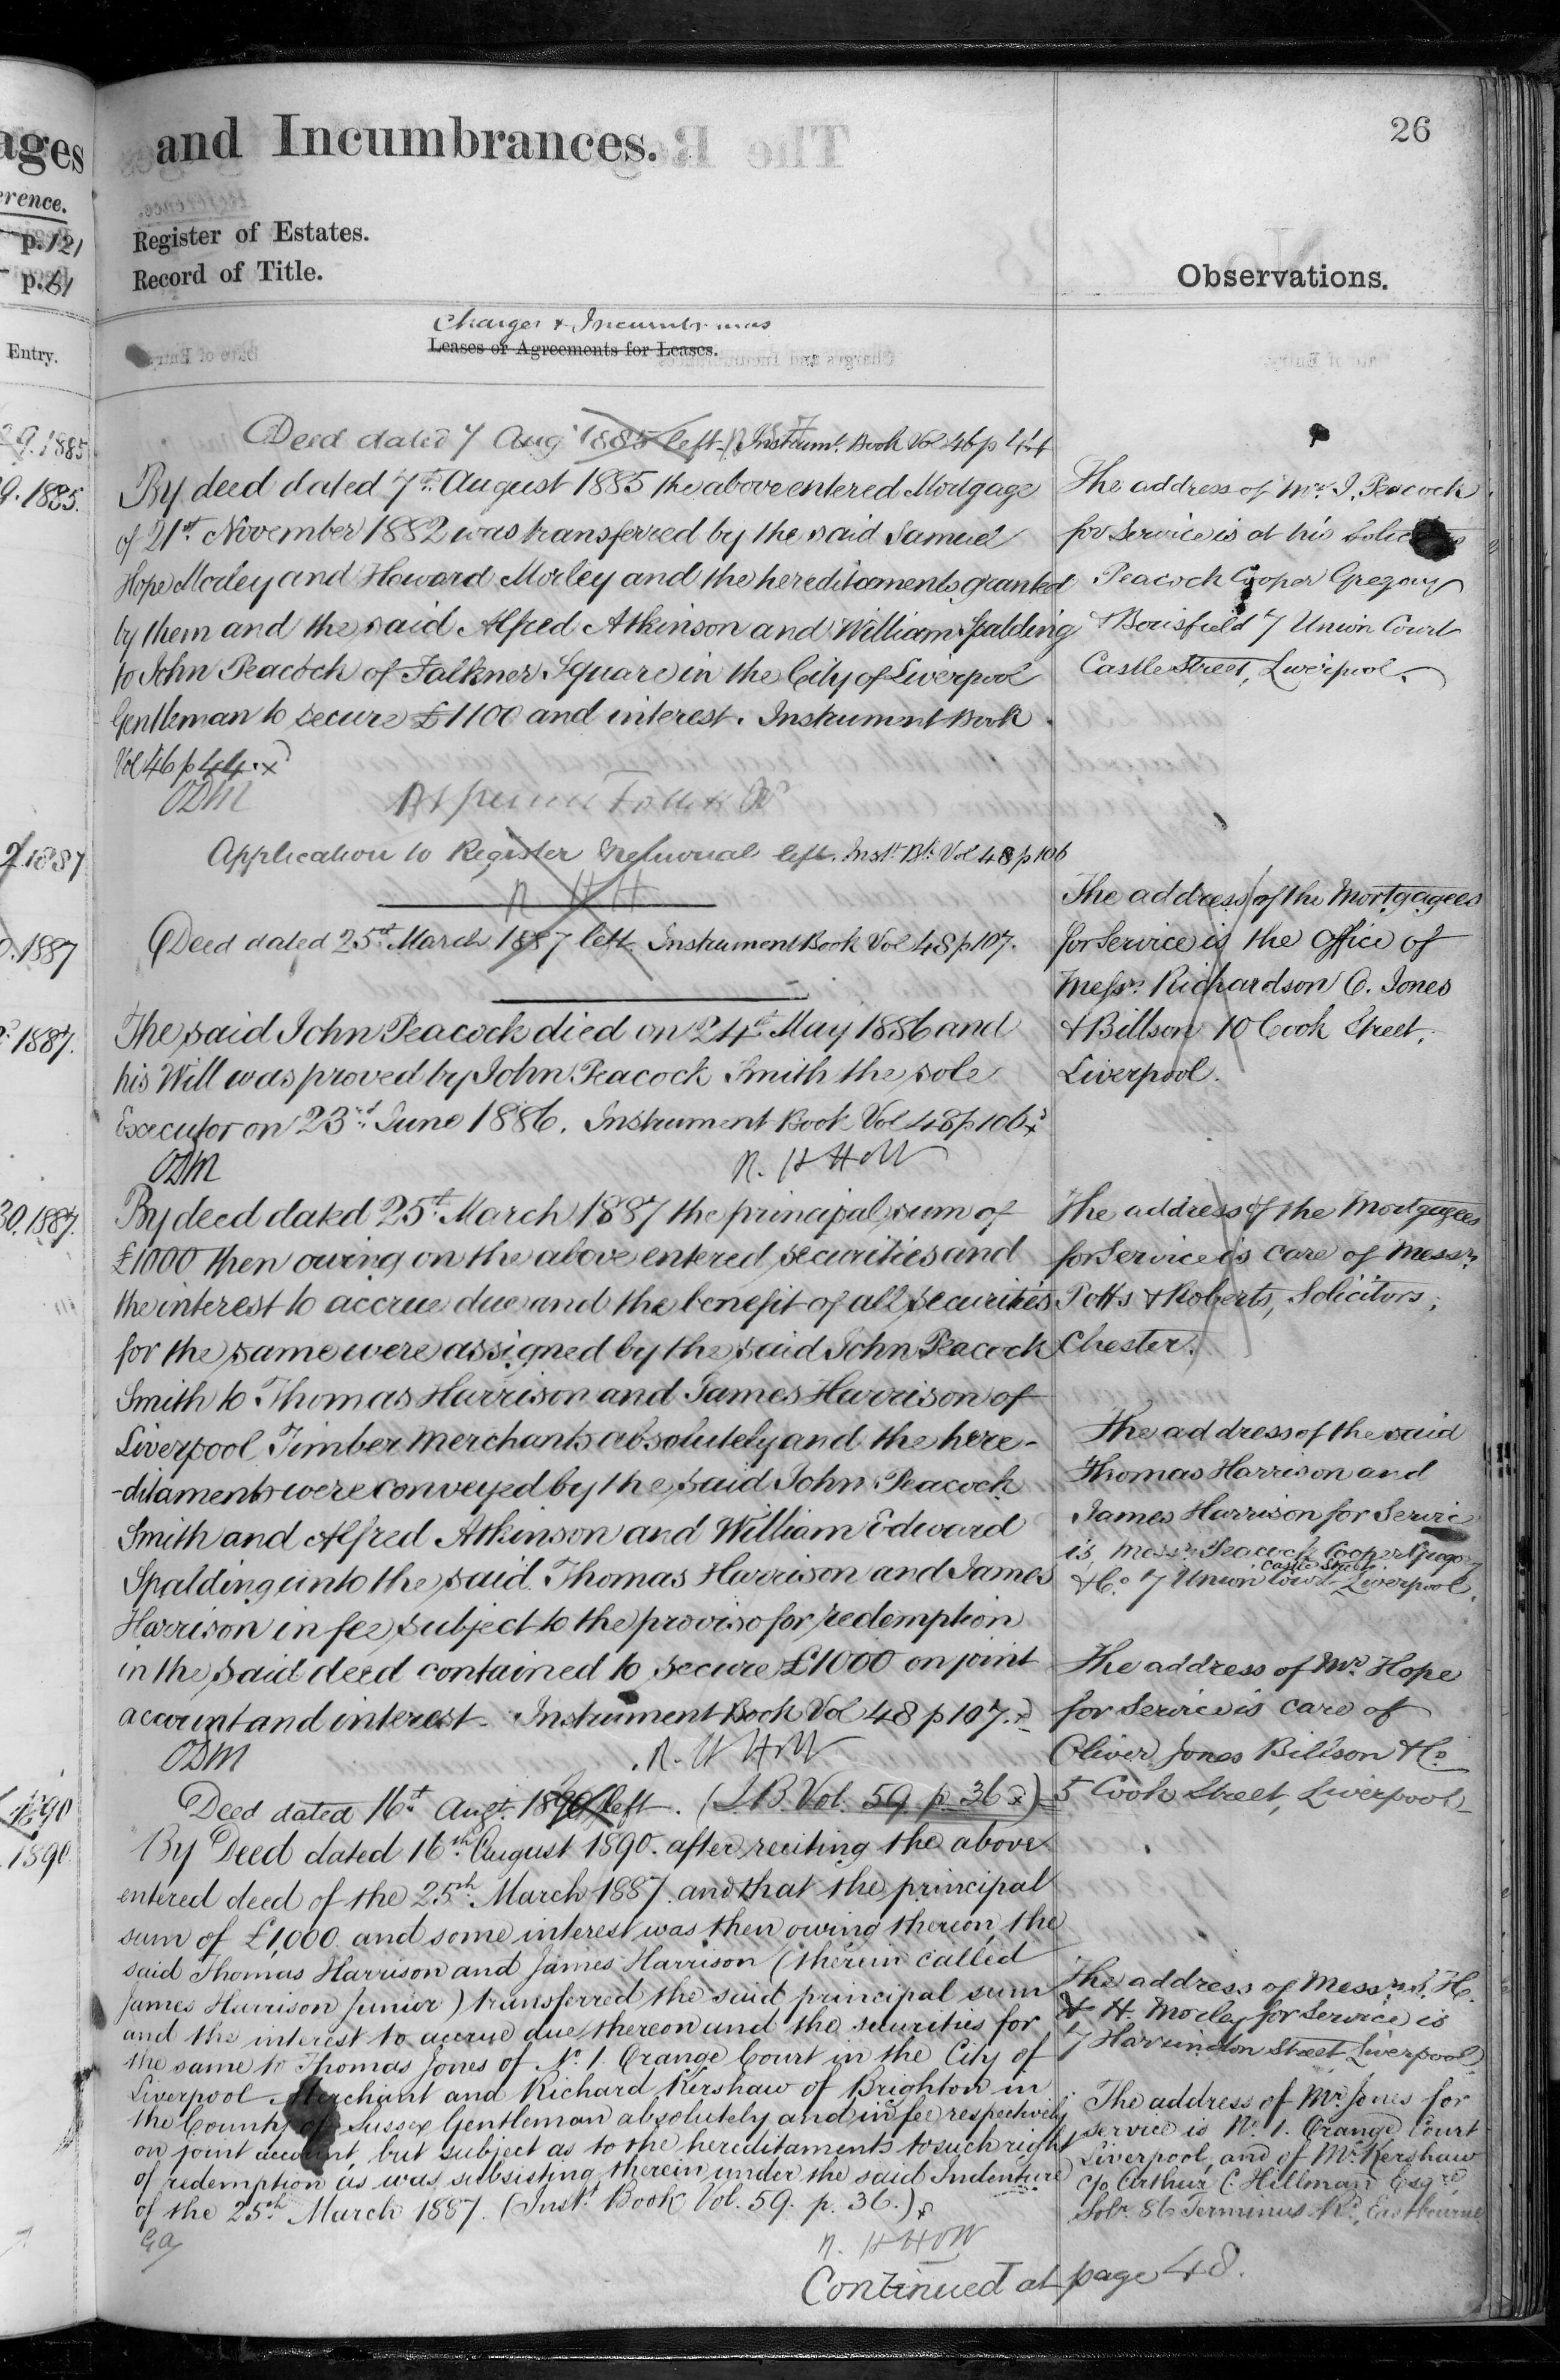 ages
erence.
p. 121
p. 61
Entry.
9. 1885
9. 1885.
2/1887
0. 1887
1887.
30. 1887.
1890
1890
and Incumbrances.
26
Register of Estates.
Record of Title.
Observations.
Charges & Incumbrances
Leases or Agreements for Leases.
Deed dated 7 Aug 1885 left. Instrumt. Book Vol 46 p 44
By deed dated 7th August 1885 the above entered Mortgage
of 21st November 1882 was transferred by the said Samuel
Hope Morley and Howard Morley and the hereditaments granted
by them and the said Alfred Atkinson and William Spalding
to John Peacock of Falkner Square in the City of Liverpool
Gentleman to secure £1100 and interest. Instrument Book
Vol 46 p 44. x
ODM
Application to Register left. Inst. Bk. Vol 48 p 106
R H H
Deed dated 25th March 1887 left Instrument Book Vol 48 p 107.
The said John Peacock died on 24th May 1886 and
his Will was proved by John Peacock Smith the sole
Executor on 23rd June 1886. Instrument Book Vol 48 p 106 x
ODM R. H H W
By deed dated 25th March 1887 the principal sum of
£1000 then owing on the above entered securities and
the interest to accrue due and the benefit of all securities
for the same were assigned by the said John Peacock
Smith to Thomas Harrison and James Harrison of
Liverpool Timber Merchants absolutely and the here-
-ditaments were conveyed by the said John Peacock
Smith and Alfred Atkinson and William Edward
Spalding unto the said Thomas Harrison and James
Harrison in fee subject to the proviso for redemption
in the said deed contained to secure £1000 on joint
account and interest. Instrument Book Vol 48 p 107. x
ODM R. H H W
Deed dated 16th Augt. 1890 left. (I.B. Vol. 59 p. 36 x)
By Deed dated 16th August 1890. after reciting the above
entered deed of the 25th March 1887. and that the principal
sum of £1,000 and some interest was then owing thereon, the
said Thomas Harrison and James Harrison (therein called
James Harrison Junior) transferred the said principal sum
and the interest to accrue due thereon and the securities for
the same to Thomas Jones of No. 1. Orange Court in the City of
Liverpool Merchant and Richard Kershaw of Brighton in
the County of Sussex Gentleman absolutely and in fee respectively
on joint account, but subject as to the hereditaments to such right
of redemption as was subsisting therein under the said Indenture
of the 25th March 1887. (Inst. Book Vol. 59. p. 36.) x
R. H H W
Continued at page 48.
The address of Mr. J. Peacock
for Service is at his
Peacock Cooper Gregory
& Bousfield 7 Union Court
Castle Street, Liverpool.
The address of the Mortgagees
for Service is the Office of
Messrs. Richardson O. Jones
& Billson 10 Cook Street,
Liverpool.
The address of the Mortgagees
for Service is care of Messrs.
Potts & Roberts, Solicitors,
Chester.
The address of the said
Thomas Harrison and
James Harrison for Service
is Messrs. Peacock Cooper Gregory
Castle Street
& Co. 7 Union Court Liverpool.
The address of Mr. Hope
for Service is care of
Oliver Jones Billson & Co.
5 Cook Street, Liverpool
The address of Messrs. S. H.
& H. Morley for Service is
7 Harrington Street Liverpool
The address of Mr. Jones for
service is No. 1. Orange Court
Liverpool, and of Mr. Kershaw
c/o Arthur C. Hillman Esqre.
Solr. 86 Terminus Rd., Eastbourne